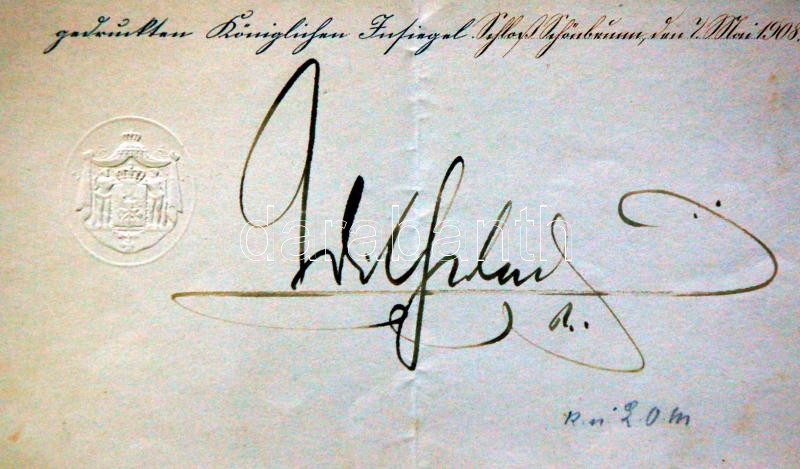 gedruckten Königlichen Insiegel. Schloß Schönbrunn, den 7. Mai 1908.
Wilhelm
R.
darabanth